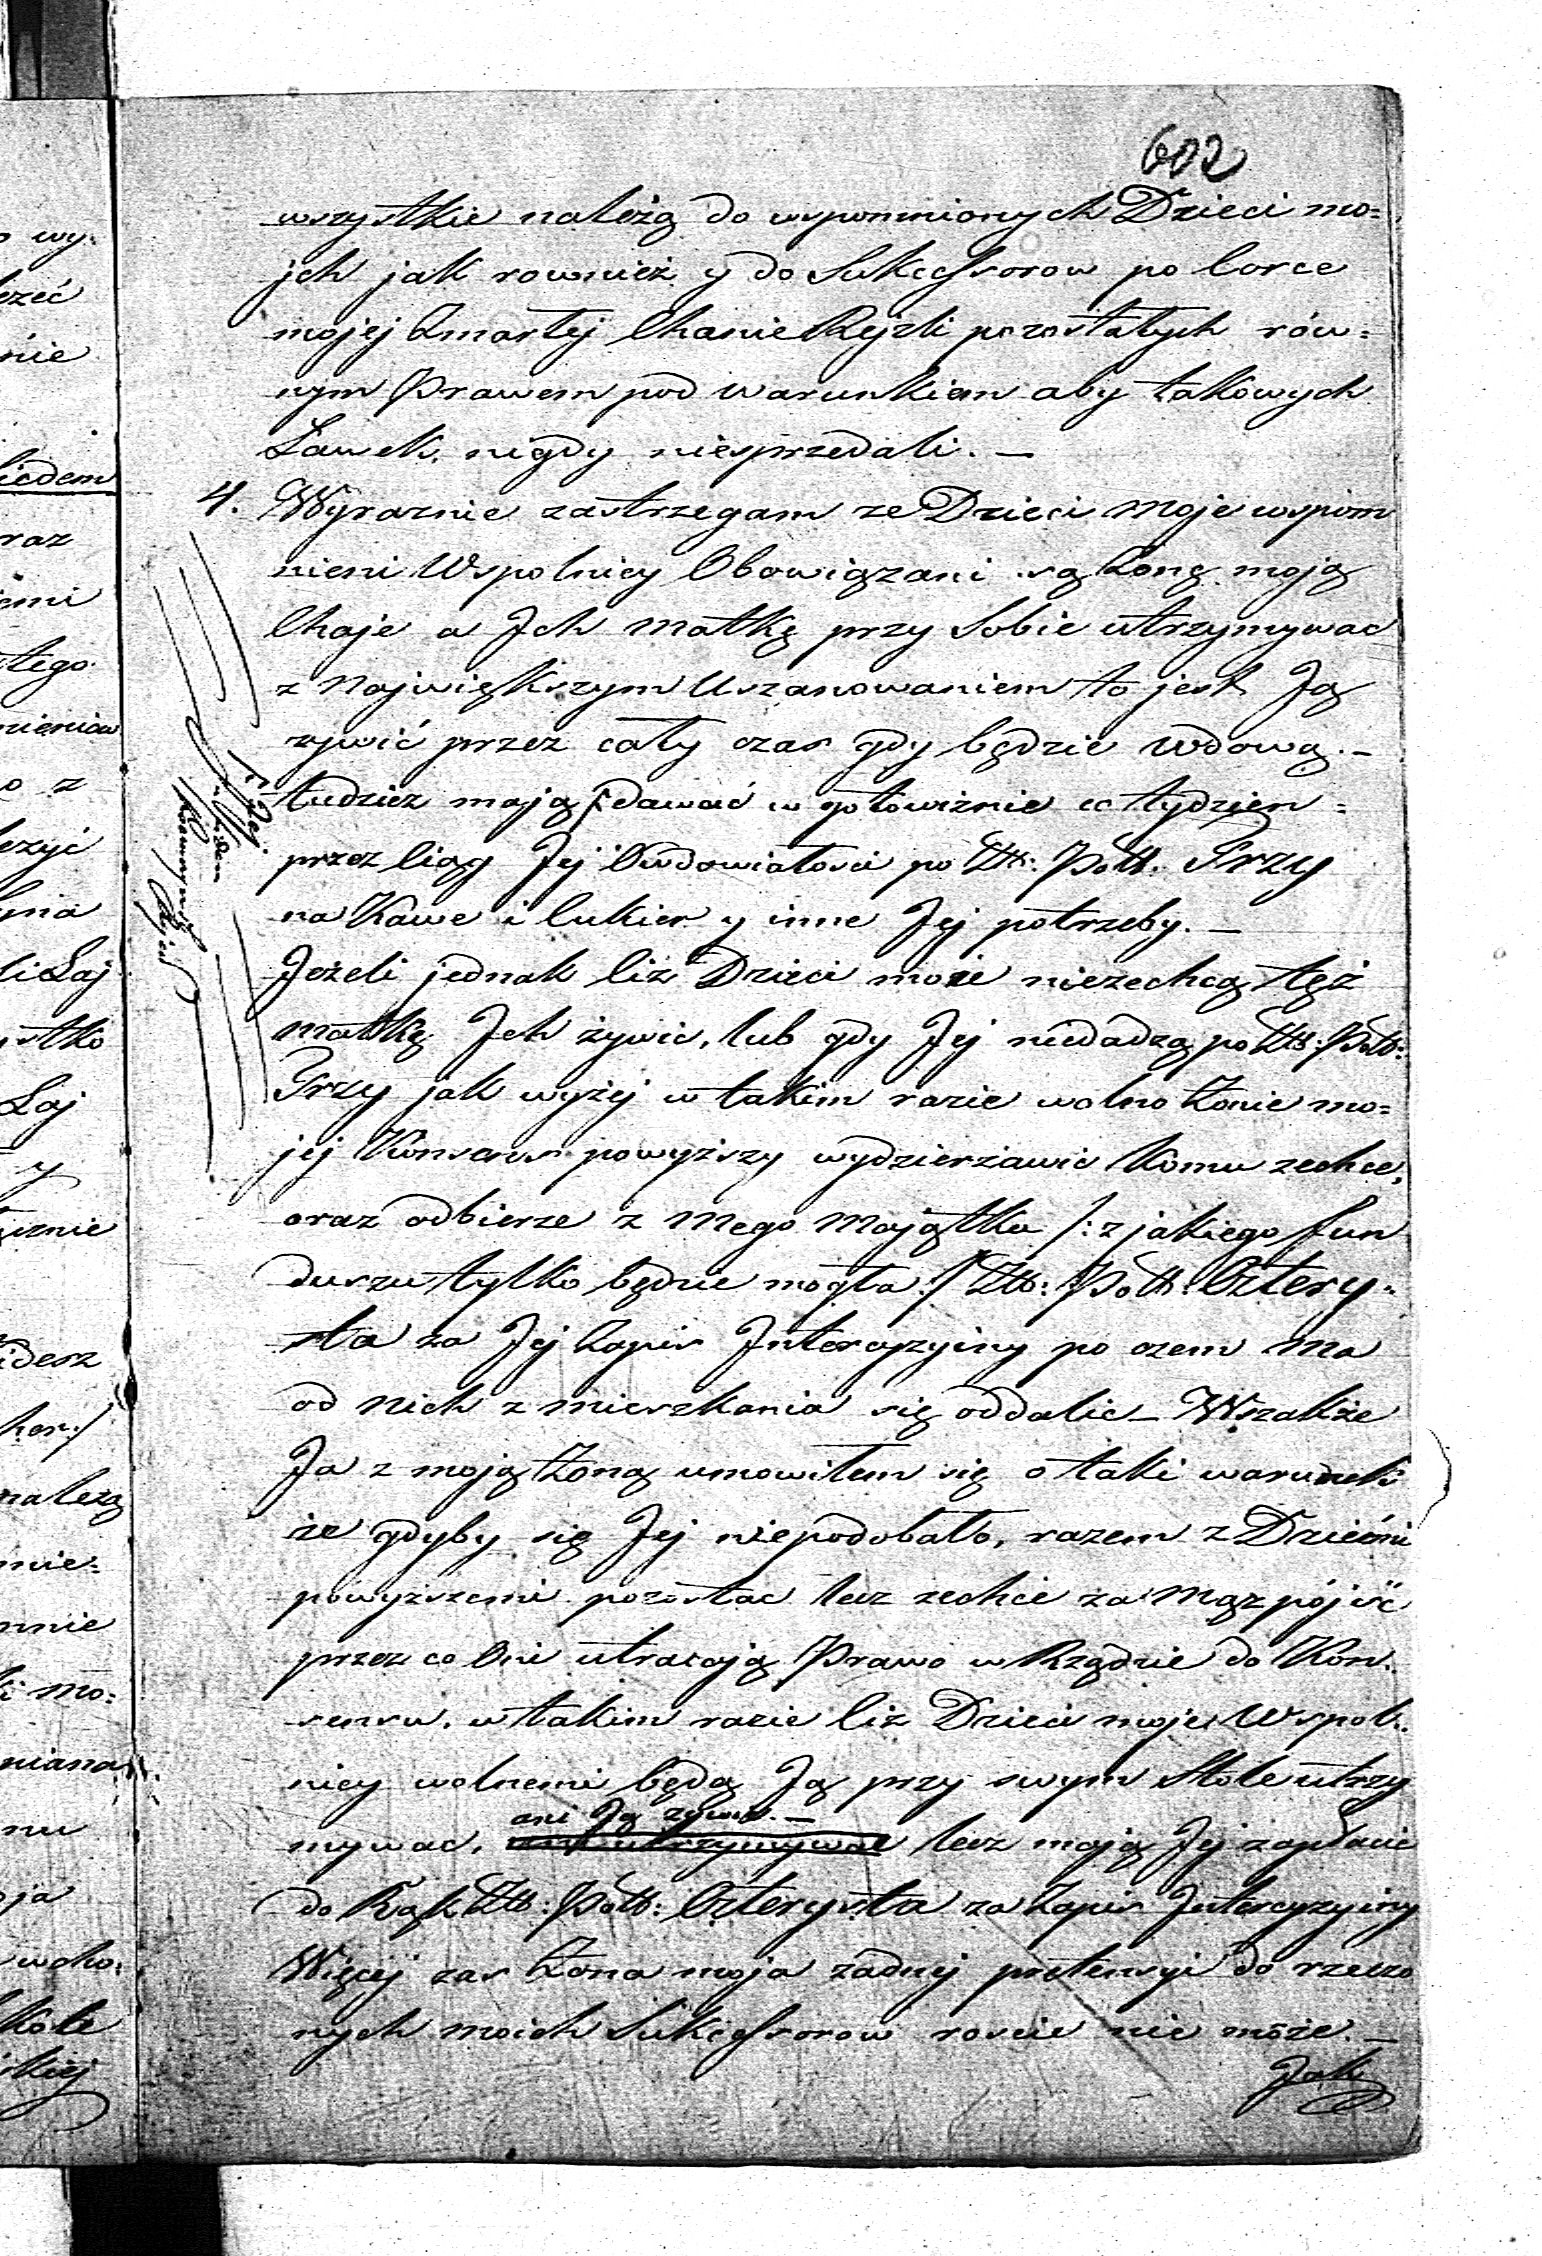 602
wszystkie należą do wspomnionych Dzieci mo=
jch jak rownież y do Sukcessorow po Corce
mojej Zmarłej Chanie Rejzli pozostałych rów=
nym Prawem pod warunkiem aby takowych
Ławek nigdy niesprzedali. —
4. Wyraznie zastrzegam ze Dzieci moje wspom
nieni Wspolnicy Obowiązani są Żonę moją
Chaje a Jch Matkę przy Sobie utrzymywac
z Największym Uszanowaniem to jest Ją
zywić przez cały czas gdy będzie Wdową. —
tudziez mają dawać w gotowiznie co tydzien =
przez Ciąg Jej Owdowiałosci po Zł: Pol: Trzy
na Kawe i Cukier y inne Jej potrzeby. —
Jeżeli jednak Ciż Dzieci moie niezechcą tęż
Matkę Jch żywic, lub gdy Jej niedadzą po Zł: Pol:
Trzy jak wyżej w takim razie wolno Żonie mo=
jej Konsens powyższy wydzierżawic Komu zechce,
oraz odbierze z Mego Majątku /: z jakiego fun
duszu tylko będzie mogła :/ Zł: Pol: Cztery=
sta za Jej Zapis Jntercyzyiny po czem Ma
od Nich z mieszkania się oddalic — Wszakże
Ja z moją Żoną umowiłem się o taki warunek
że gdyby się Jej niepodobało, razem z Dziećmi
powyższemi pozostac lecz zechce za Mąż pójsć
przez co Oni utracają Prawo w Rządzie do Kon
sensu, w takim razie Ciż Dzieci moje Wspol=
nicy wolnemi będą Ją przy swym Stole utrzy
ani Ją zywic. —
mywac, ani utrzymywac lecz mają Jej zapłacic
do Rąk Zł: Pol: Czterysta za Zapis Jntercyzyiny
Więcej zas Żona moja żadnej pretensyi do rzeczo
nych moich Sukcessorow roscic nie może. —
Jak
Jej